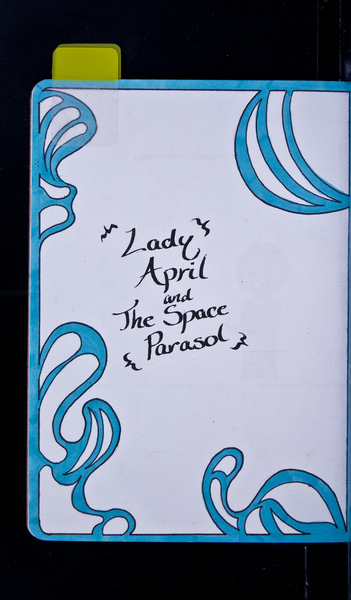 Lady
April
and
The Space
Parasol